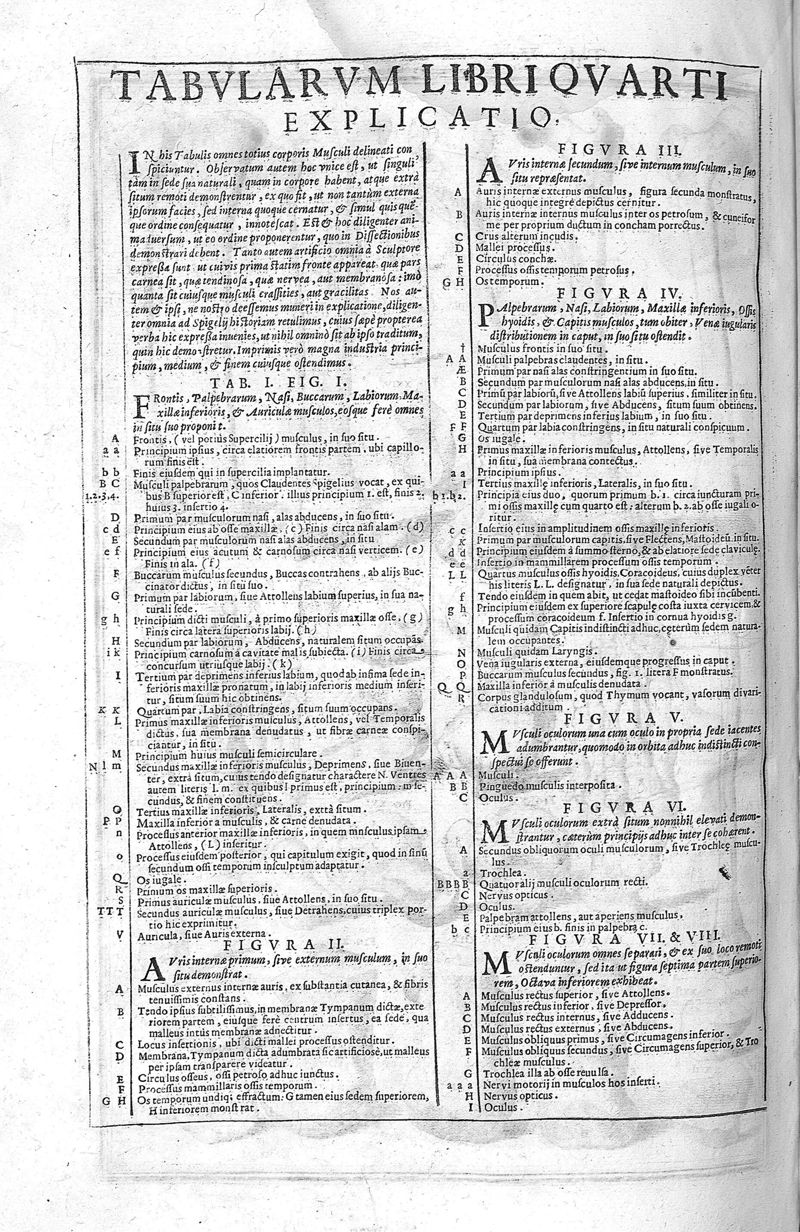 TABVLARVM LIBRI QVARTI
EXPLICATIO.
IN his Tabulis omnes totius corporis Musculi delineati con
spiciuntur. Observatum autem hoc vnice est, ut singuli
tàm in sede sua naturali, quam in corpore habent, atque extrà
situm remoti demonstrentur, ex quo fit, ut non tantùm externa
ipsorum facies, sed interna quoque cernatur, & simul quis quê-
que ordine consequatur, innotescat. Est & hoc diligenter ani-
maduersum, ut eo ordine proponerentur, quo in Dissectionibus
demonstrari debent. Tanto autem artificio omnia à Sculptore
expressa sunt ut cuivis prima statim fronte appareat, quæ pars
carnea sit, quæ tendinosa, quæ nervea, aut membranosa: imò
quanta sit cuiusque musculi crassities, aut gracilitas. Nos au-
tem & ipsi, ne nostro deessemus muneri in explicatione, diligen-
ter omnia ad Spigelij historiam retulimus, cuius sæpè propterea
verba hic expressa inuenies, ut nihil omninò sit ab ipso traditum,
quin hic demonstretur. Imprimis verò magna industria princi-
pium, medium, & finem cuiusque ostendimus.
TAB. I. FIG. I.
FRontis, Palpebrarum, Nasi, Buccarum, Labiorum, Ma-
xillæ inferioris, & Auriculæ musculos, eosque ferè omnes
in situ suo proponit.
A Frontis, (vel potius Supercilij) musculus, in suo situ.
a a Principium ipsius, circa elatiorem frontis partem, ubi capillo-
rum finis est.
b b Finis eiusdem qui in supercilia implantatur.
B C Musculi palpebrarum, quos Claudentes Spigelius vocat, ex qui-
1.2.3.4. bus B superior est, C inferior. illius principium 1. est, finis 2.
huius 3. insertio 4.
D Primum par musculorum nasi, alas abducens, in suo situ.
c d Principium eius ab osse maxillæ. (c) Finis circa nasi alam. (d)
E Secundum par musculorum nasi alas abducens, in situ.
e f Principium eius acutum & carnosum circa nasi verticem. (e)
Finis in ala. (f)
F Buccarum musculus secundus, Buccas contrahens. ab alijs Buc-
cinator dictus, in situ suo.
G Primum par labiorum, siue Attollens labium superius, in sua na-
turali sede.
g h Principium dicti musculi, à primo superioris maxillæ osse. (g)
Finis circa latera superioris labij. (h)
H Secundum par labiorum, Abducens, naturalem situm occupãs.
i k Principium carnosum à cavitate malis subiecta. (i) Finis circa
concursum utriusque labij. (k)
I Tertium par deprimens inferius labium, quod ab infima sede in-
ferioris maxillæ pronatum, in labij inferioris medium inseri-
tur, situm suum hic obtinens.
K K Quartum par, Labia constringens, situm suum occupans.
L Primus maxillæ inferioris musculus, Attollens, vel Temporalis
dictus, sua membrana denudatus, ut fibræ carneæ conspi-
ciantur, in situ.
M Principium huius musculi semicirculare.
N l m Secundus maxillæ inferioris musculus, Deprimens, siue Biuen-
ter, extrà situm, cuius tendo designatur charactere N. Ventres
autem literis l. m. ex quibus l primus est, principium: m se-
cundus, & finem constituens.
O Tertius maxillæ inferioris, Lateralis, extrà situm.
P P Maxilla inferior a musculis, & carne denudata.
n Processus anterior maxillæ inferioris, in quem musculus ipsam
Attollens, (L) inseritur.
o Processus eiusdem posterior, qui capitulum exigit, quod in sinũ
secundum ossi temporum insculptum adaptatur.
Q Os iugale.
R Primum os maxillæ superioris.
S Primus auriculæ musculus, siue Attollens, in suo situ.
T T T Secundus auriculæ musculus, siue Detrahens, cuius triplex por-
tio hic exprimitur.
V Auricula, siue Auris externa.
FIGVRA II.
AVris internæ primum, sive externum musculum, in suo
situ demonstrat.
A Musculus externus internæ auris, ex substantia cutanea, & fibris
tenuissimis constans.
B Tendo ipsius subtilissimus, in membranæ Tympanum dictæ, exte
riorem partem, eiusque ferè centrum insertus, ea sede, qua
malleus intùs membranæ adnectitur.
C Locus insertionis, ubi dicti mallei processus ostenditur.
D Membrana, Tympanum dicta adumbrata sic artificiosè, ut malleus
per ipsam transparere videatur.
E Circulus osseus, ossi petroso adhuc iunctus.
F Processus mammillaris ossis temporum.
G H Os temporum undiq; effractum: G tamen eius sedem superiorem,
H inferiorem monstrat.
FIGVRA III.
AVris internæ secundum, sive internum musculum, in suo
situ repræsentat.
A Auris internæ externus musculus, figura secunda monstratus,
hic quoque integrè depictus cernitur.
B Auris internæ internus musculus inter os petrosum, & cuneifor
me per proprium ductum in concham porrectus.
C Crus alterum incudis.
D Mallei processus.
E Circulus conchæ.
F Processus ossis temporum petrosus.
G H Os temporum.
FIGVRA IV.
PAlpebrarum, Nasi, Labiorum, Maxillæ inferioris, Ossis
hyoidis, & Capitis musculos, tum obiter, Venæ iugularis
distributionem in caput, in suo situ ostendit.
† Musculus frontis in suo situ.
A A Musculi palpebras claudentes, in situ.
Æ Primum par nasi alas constringentium in suo situ.
B Secundum par musculorum nasi alas abducens, in situ.
C Primũ par labiorũ, sive Attollens labiũ superius. similiter in situ.
D Secundum par labiorum, sive Abducens, situm suum obtinens.
E Tertium par deprimens inferius labium, in suo situ.
F F Quartum par labia constringens, in situ naturali conspicuum.
G Os iugale.
H Primus maxillæ inferioris musculus, Attollens, sive Temporalis
in situ, sua membrana contectus.
a a Principium ipsius.
I Tertius maxillæ inferioris, Lateralis, in suo situ.
b 1. b 2. Principia eius duo, quorum primum b. 1. circa iuncturam pri-
mi ossis maxillæ cum quarto est: alterum b. 2. ab osse iugali o-
ritur.
c c Insertio eius in amplitudinem ossis maxillæ inferioris.
K Primum par musculorum capitis, sive Flectens, Mastoideũ, in situ.
d d Principium eiusdem à summo sterno, & ab elatiore sede claviculę.
e e Insertio in mammillarem processum ossis temporum.
L L Quartus musculus ossis hyoidis, Coracoideus, cuius duplex vēter
his literis L. L. designatur, in sua sede naturali depictus.
f Tendo eiusdem in quem abit, ut cedat mastoideo sibi incũbenti.
g h Principium eiusdem ex superiore scapulę costa iuxta cervicem. &
processum coracoideum f. Insertio in cornua hyoidis g.
M Musculi quidam Capitis indistincti adhuc, ceterùm sedem natura-
lem occupantes.
N Musculi quidam Laryngis.
O Vena iugularis externa, eiusdemque progressus in caput.
P Buccarum musculus secundus, fig. 1. litera F monstratus.
Q Q Maxilla inferior à musculis denudata.
R Corpus glandulosum, quod Thymum vocant, vasorum divari-
cationi additum.
FIGVRA V.
MVsculi oculorum una cum oculo in propria sede iacentes
adumbrantur, quomodo in orbita adhuc indistincti con-
spectui se offerunt.
A A A Musculi.
B B Pinguedo musculis interposita.
C Oculus.
FIGVRA VI.
MVsculi oculorum extrà situm nonnihil elevati demon-
strantur, cæterùm principijs adhuc inter se cohærent.
A Secundus obliquorum oculi musculorum, sive Trochleę muscu-
lus.
a Trochlea.
BBBB Quatuor alij musculi oculorum recti.
C Nervus opticus.
D Oculus.
E Palpebram attollens, aut aperiens musculus.
b c Principium eius b. finis in palpebra c.
FIGVRA VII. & VIII.
MVsculi oculorum omnes separati, & ex suo loco remoti
ostenduntur, sed ita ut figura septima partem superio-
rem, Octava inferiorem exhibeat.
A Musculus rectus superior, sive Attollens.
B Musculus rectus inferior, sive Depressor.
C Musculus rectus internus, sive Adducens.
D Musculus rectus externus, sive Abducens.
E Musculus obliquus primus, sive Circumagens inferior.
F Musculus obliquus secundus, sive Circumagens superior, & Tro
chleæ musculus.
G Trochlea illa ab osse reuulsa.
a a a Nervi motorij in musculos hos inserti.
H Nervus opticus.
I Oculus.